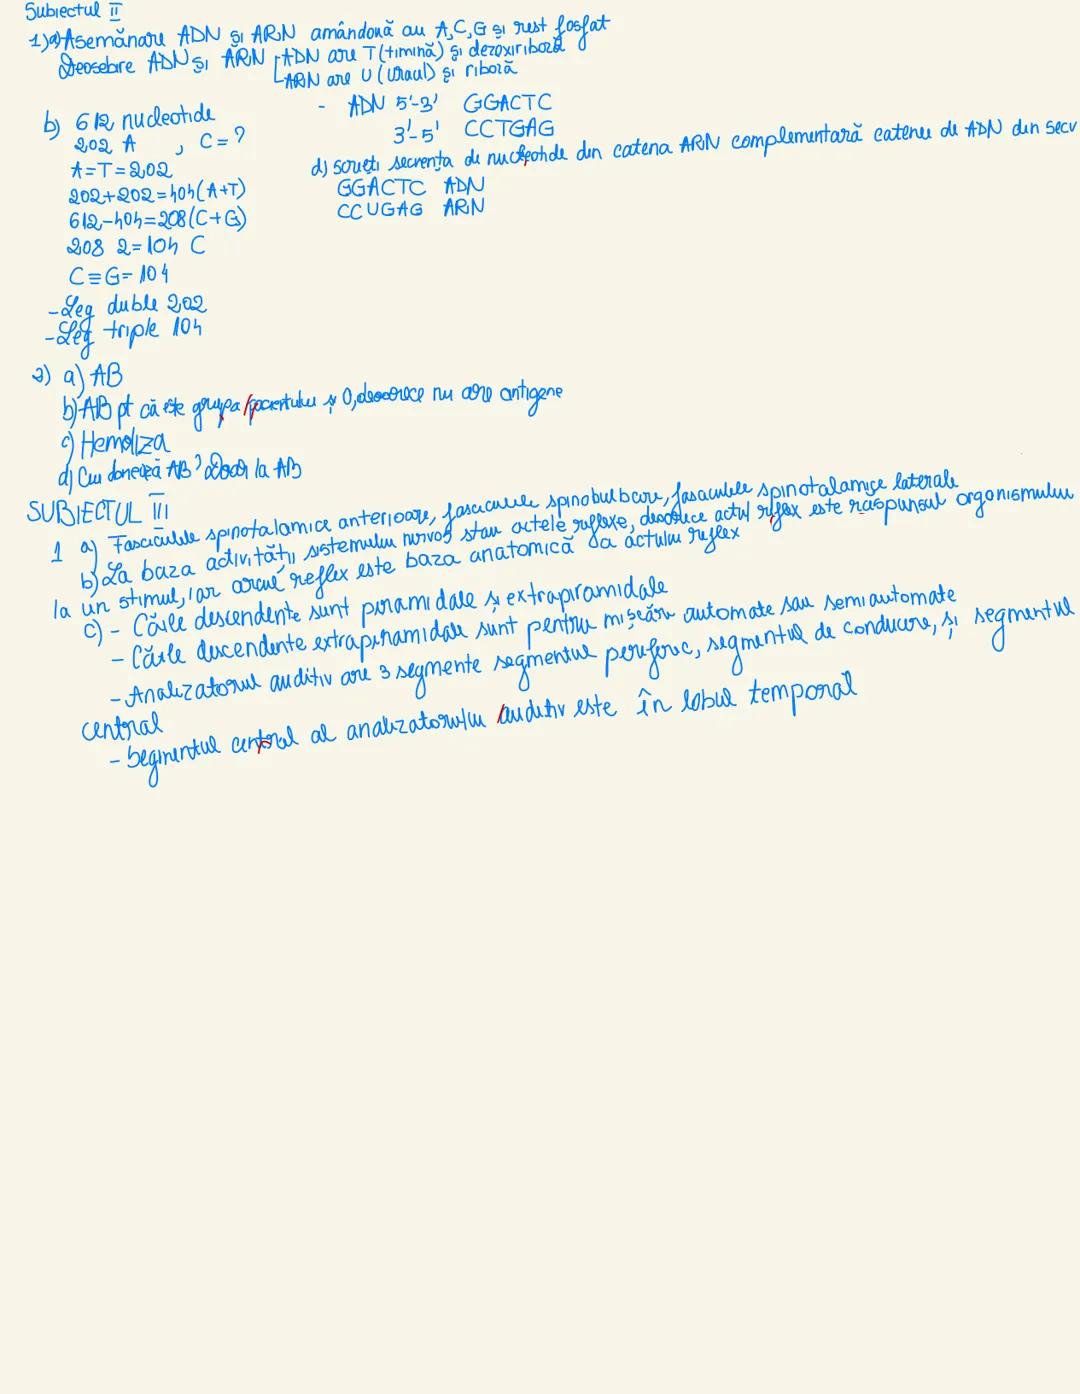 Subiectul II
1)a) Asemănare ADN și ARN amândouă au A,C,G și rest fosfat
Deosebire ADN și ARN ADN are T(timină) și dezoxiriboză
ARN are U (Uracil) și riboză
b) 612 nucleotide
202 A , C=?
A=T=202
202+202=404(A+T)
612-404=208(C+G)
208 2=104 C
C≡G=104
-Leg duble 202
-Leg triple 104
- ADN 5'-3' GGACTC
3'-5' CCTGAG
d) scrieți secvența de nucleotide din catena ARN complementară catenei de ADN din secv
GGACTC ADN
CCUGAG ARN
2) a) AB
b) AB pt că este grupa pacientului și 0, deoarece nu are antigene
c) Hemoliza
d) Cui donează AB? doar la AB
SUBIECTUL III
1 a) Fasciculele spinotalamice anterioare, fasciculele spinobulbare, fasciculele spinotalamice laterale
b) La baza activității sistemului nervos stau actele reflexe, deoarece actul reflex este răspunsul organismului
la un stimul, iar arcul reflex este baza anatomică a actului reflex
c) - Căile descendente sunt piramidale și extrapiramidale
- Căile descendente extrapiramidale sunt pentru mișcări automate sau semiautomate
- Analizatorul auditiv are 3 segmente segmentul periferic, segmentul de conducere, și segmentul
central
- Segmentul central al analizatorului auditiv este în lobul temporal